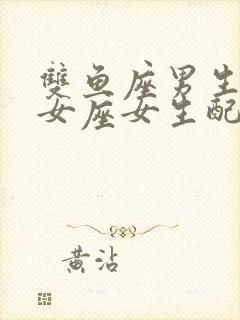 雙鱼座男生
女座女生配
黄沾